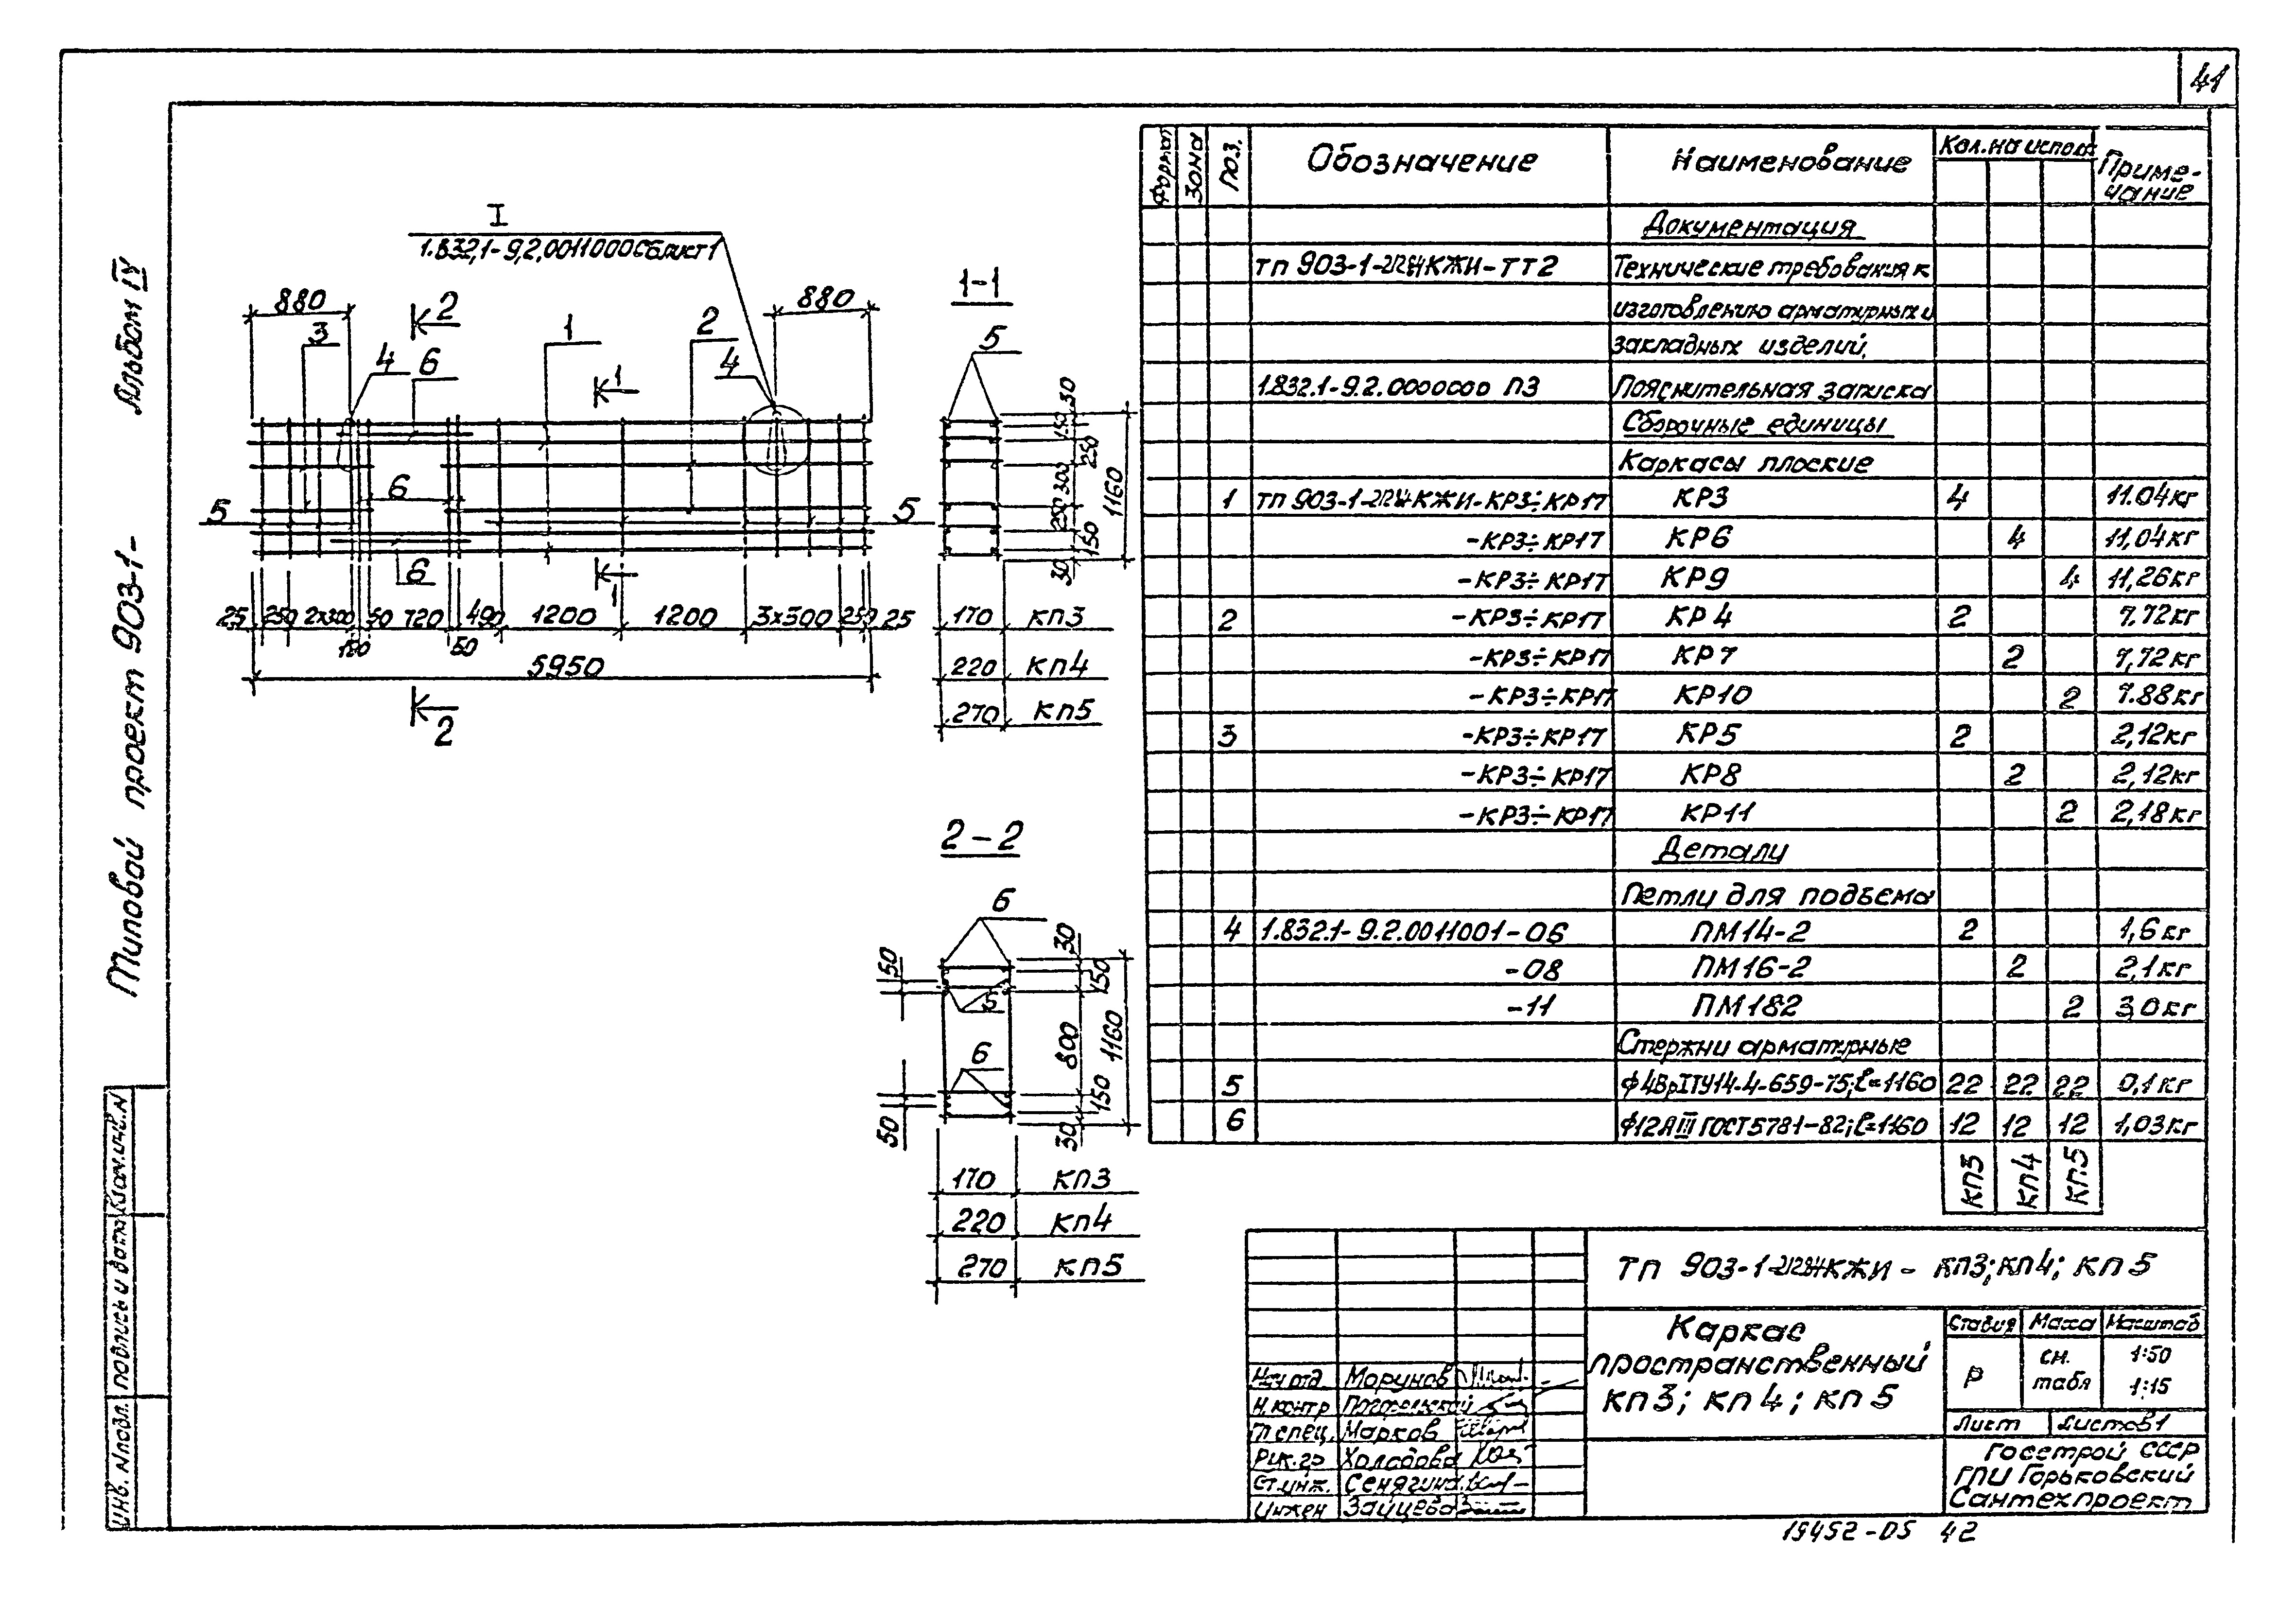 41
Альбом IV
Типовой проект 903-1-
I
1.832,1-9,2,0011000СБлист1
880
2
880
3
4
6
1
2
4
1
6
5
5
6
1
25 250 2х300 50 720 490 1200 1200 3х300 250 25
120 50
5950
2
1-1
5
30
150
250
300
250
150
30
1160
170 КП3
220 КП4
270 КП5
2-2
6
50
5
30
150
800
1160
6
50
150
30
170 КП3
220 КП4
270 КП5
Формат Зона Поз. Обозначение Наименование Кол.на испол. Приме-
чание
Документация
ТП 903-1- КЖИ-ТТ2 Технические требования к
изготовлению арматурных и
закладных изделий.
1.832.1-9.2.0000000 ПЗ Пояснительная записка
Сборочные единицы
Каркасы плоские
1 ТП 903-1- КЖИ-КР3÷КР17 КР3 4 11.04кг
-КР3÷КР17 КР6 4 11,04кг
-КР3÷КР17 КР9 4 11,26кг
2 -КР3÷КР17 КР4 2 7.72кг
-КР3÷КР17 КР7 2 7,72кг
-КР3÷КР17 КР10 2 7.88кг
3 -КР3÷КР17 КР5 2 2,12кг
-КР3÷КР17 КР8 2 2,12кг
-КР3÷КР17 КР11 2 2,18кг
Детали
Петли для подъема
4 1.832.1-9.2.0011001-06 ПМ14-2 2 1,6кг
-08 ПМ16-2 2 2,1кг
-11 ПМ182 2 3,0кг
Стержни арматурные
5 ф4ВрIТУ14-4-659-75;ℓ=1160 22 22 22 0,1кг
6 ф12АIII ГОСТ5781-82;ℓ=1160 12 12 12 1,03кг
КП3 КП4 КП5
ТП 903-1- КЖИ - КП3; КП4; КП5
Каркас
пространственный
КП3; КП4; КП5
Стадия Масса Масштаб
Р см.
табл 1:50
1:15
Лист Листов1
Госстрой СССР
ГПИ Горьковский
Сантехпроект
Нач.отд. Морунов
Н.контр
Гл спец. Марков
Рук.гр Холодова
Ст.инж. Сенягина
Инжен Зайцева
Взам.инв.N
Подпись и дата
Инв. Nподл.
19452-05 42